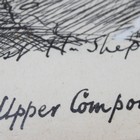 H. Shep
Upper Compo